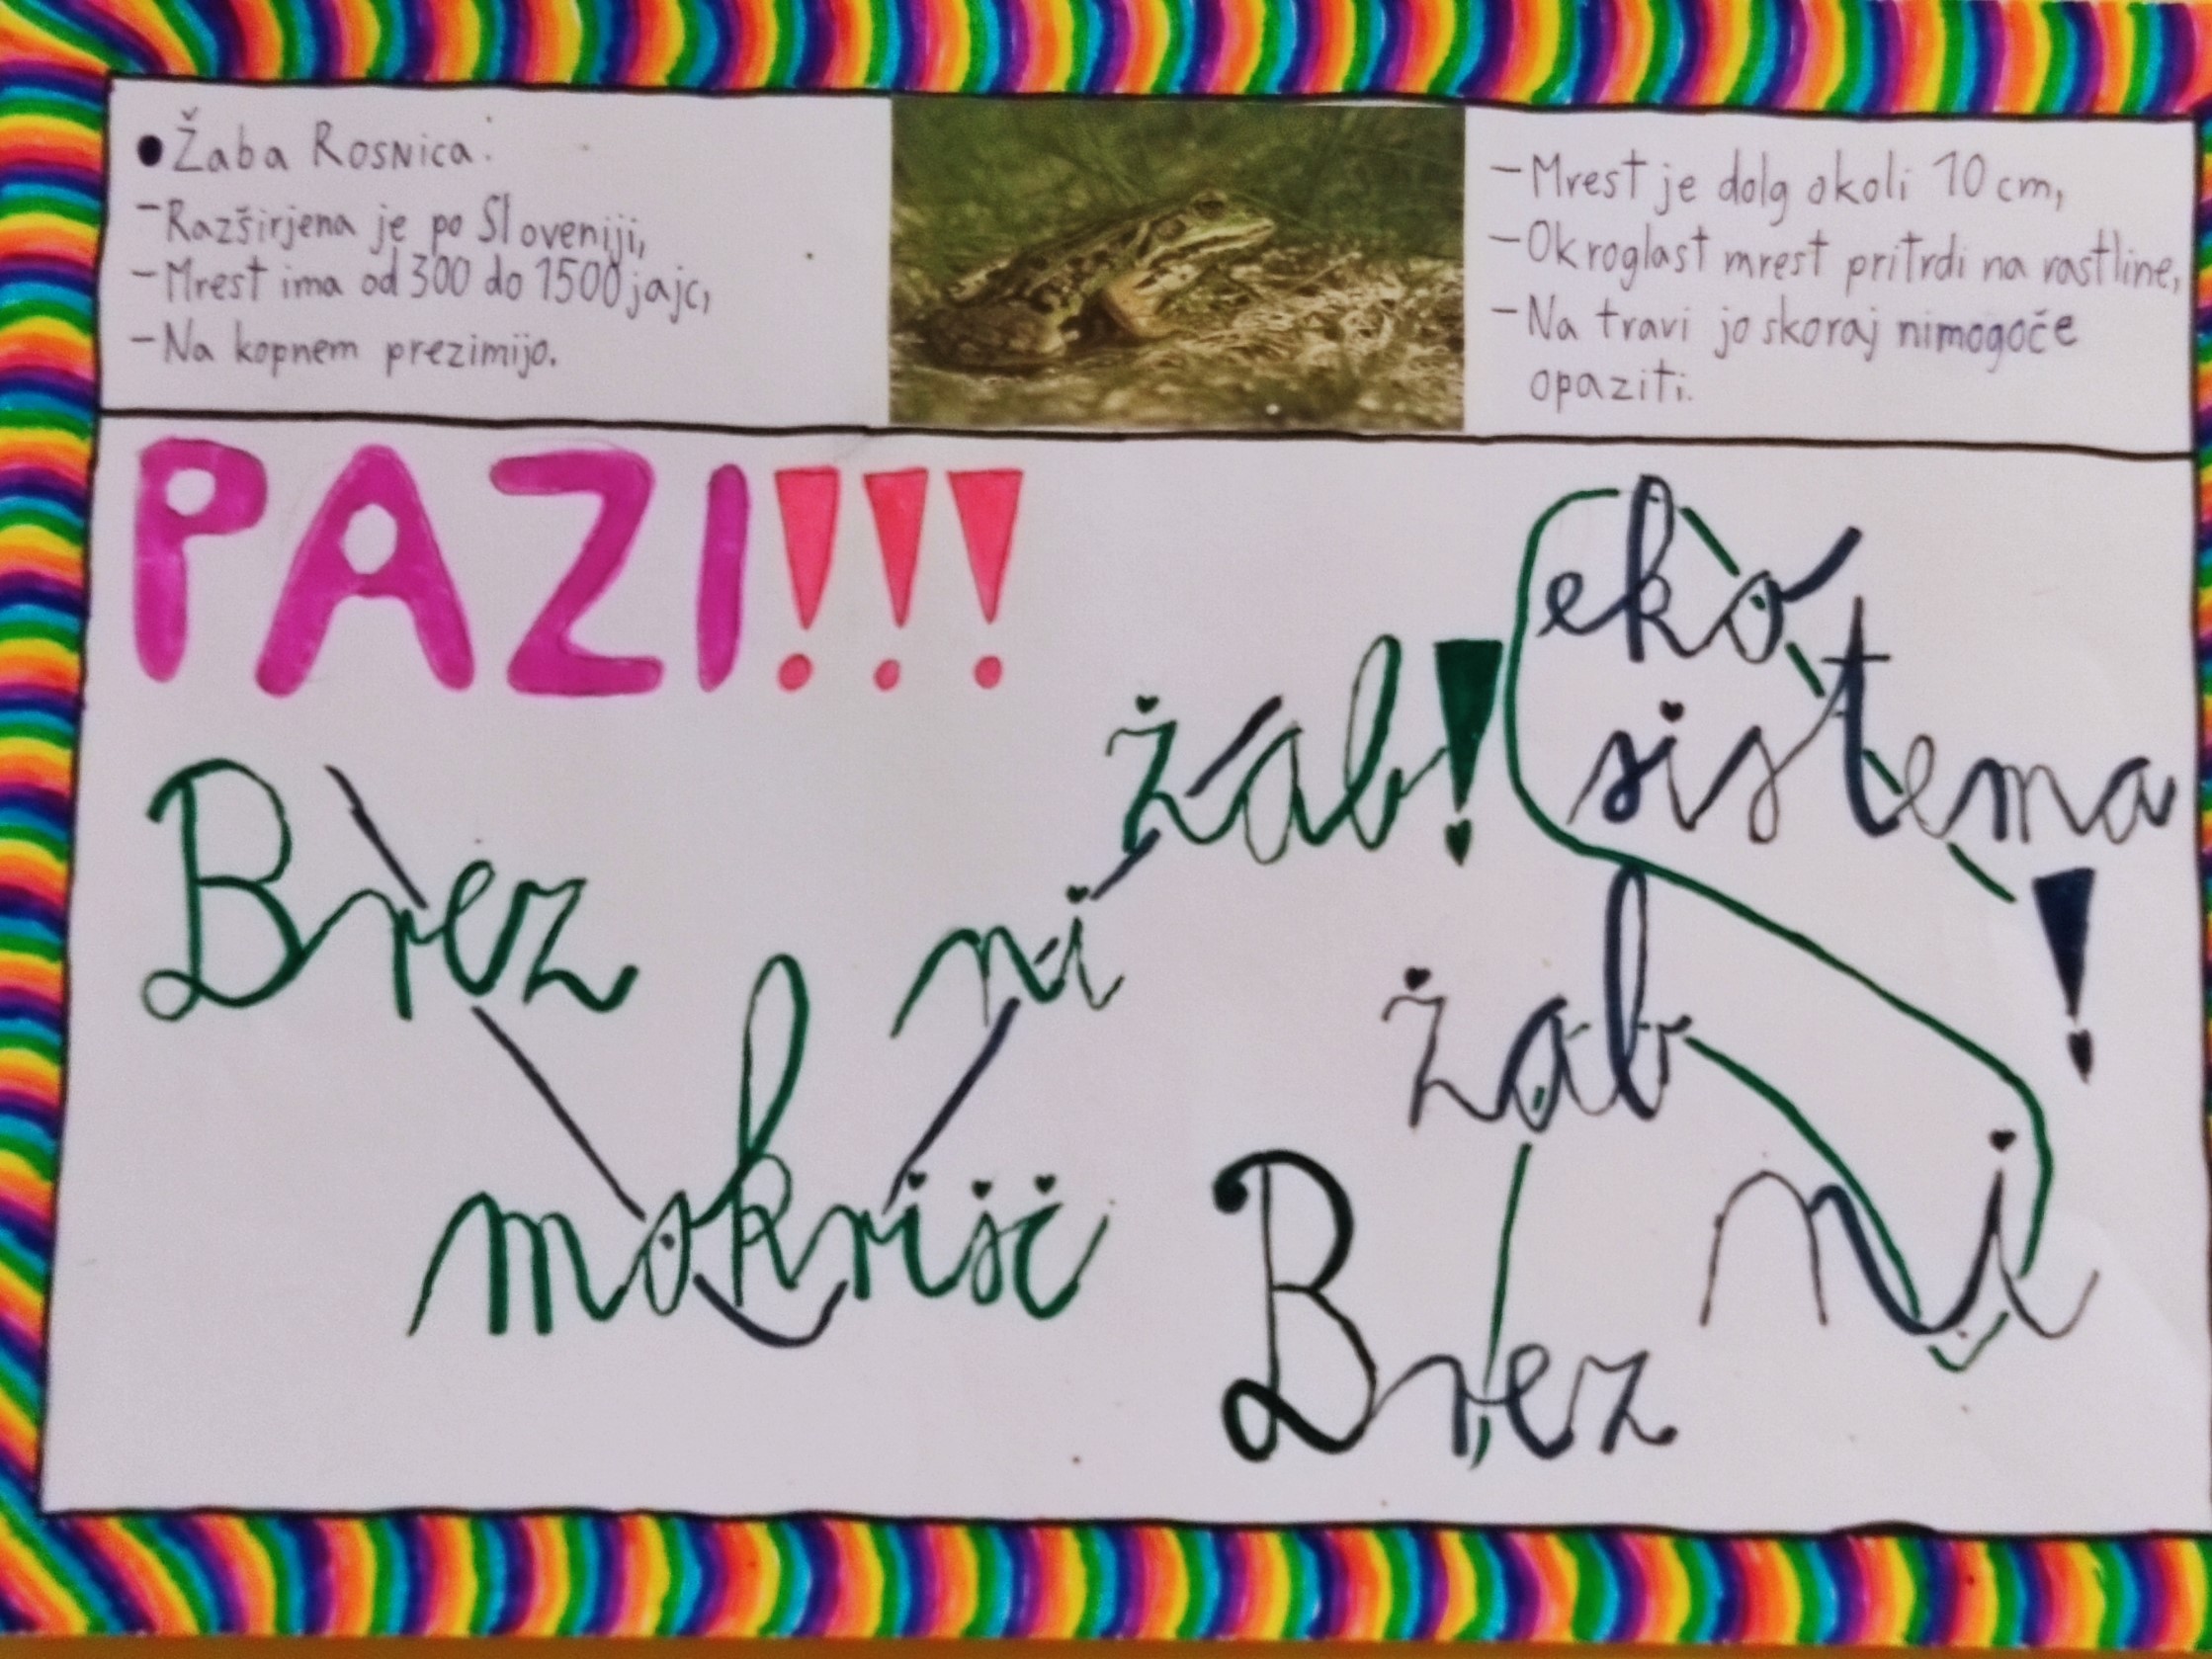 • Žaba Rosnica:
- Razširjena je po Sloveniji,
- Mrest ima od 300 do 1500 jajc,
- Na kopnem prezimijo.
- Mrest je dolg okoli 10 cm,
- Okroglast mrest pritrdi na rastline,
- Na travi jo skoraj nimogoče
opaziti.
PAZI!!!
Brez
mokrišč
ni
žab!
Brez
žab
ni
eko
sistema!